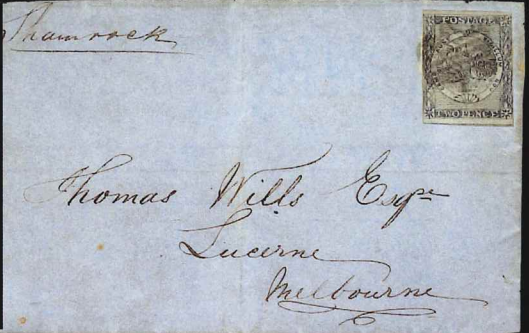 Shamrock
POSTAGE
TWO PENCE
Thomas Wills Esqre
Lucerne
Melbourne